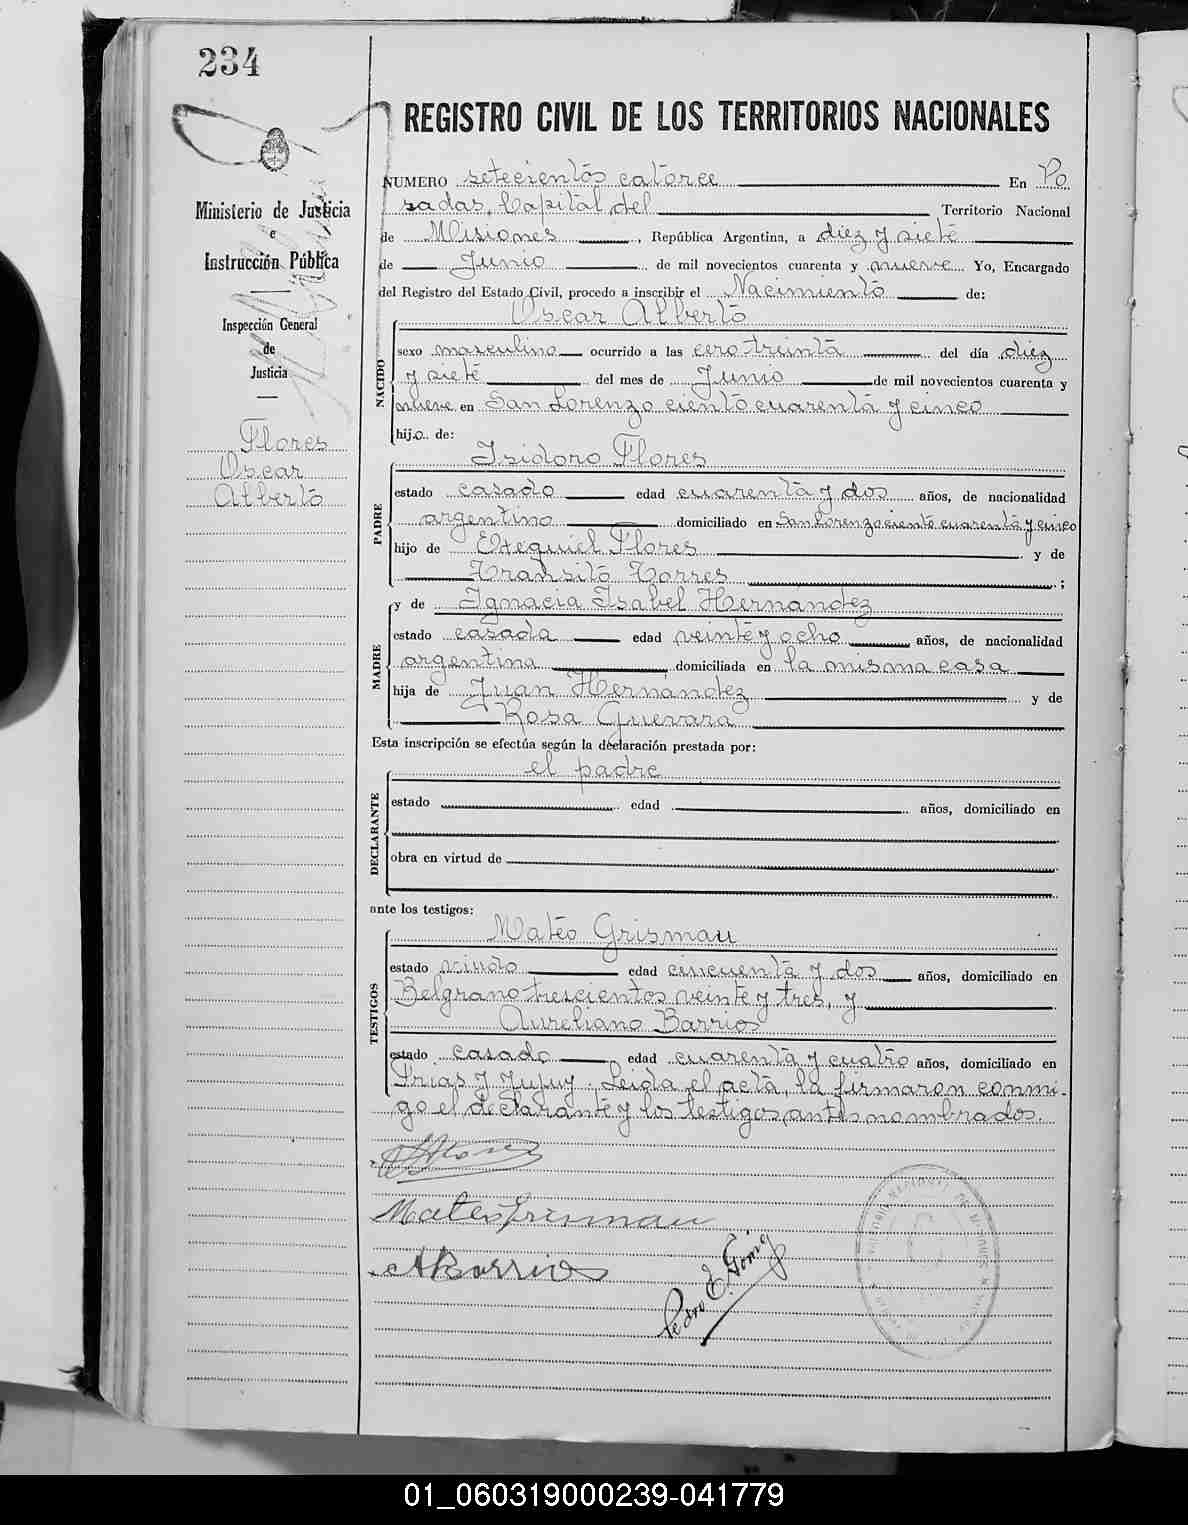 234
REGISTRO CIVIL DE LOS TERRITORIOS NACIONALES
Ministerio de Justicia
e
Instrucción Pública
Inspección General
de
Justicia
Flores
Oscar
Alberto
NUMERO setecientos catorce En Po
sadas, Capital del Territorio Nacional
de Misiones, República Argentina, a diez y siete
de Junio de mil novecientos cuarenta y nueve Yo, Encargado
del Registro del Estado Civil, procedo a inscribir el Nacimiento de:
Oscar Alberto
NACIDO
sexo masculino ocurrido a las cero treinta del día diez
y siete del mes de Junio de mil novecientos cuarenta y
nueve en San Lorenzo ciento cuarenta y cinco
hijo de:
Isidoro Flores
PADRE
estado casado edad cuarenta y dos años, de nacionalidad
argentino domiciliado en San Lorenzo ciento cuarenta y cinco
hijo de Ezequiel Flores y de
Transito Torres ;
y de Ignacia Isabel Hernandez
MADRE
estado casada edad veinte y ocho años, de nacionalidad
argentina domiciliada en la misma casa
hija de Juan Hernandez y de
Rosa Guevara
Esta inscripción se efectúa según la declaración prestada por:
el padre
DECLARANTE
estado edad años, domiciliado en
obra en virtud de
ante los testigos:
Mateo Grismau
TESTIGOS
estado viudo edad cincuenta y dos años, domiciliado en
Belgrano trescientos veinte y tres, y
Aureliano Barrios
estado casado edad cuarenta y cuatro años, domiciliado en
Frias y Jujuy. Leida el acta, la firmaron conmi-
go el declarante y los testigos antes nombrados.
Mateo Grismau
A Barrios
Pedro E. Gómez
01_060319000239-041779